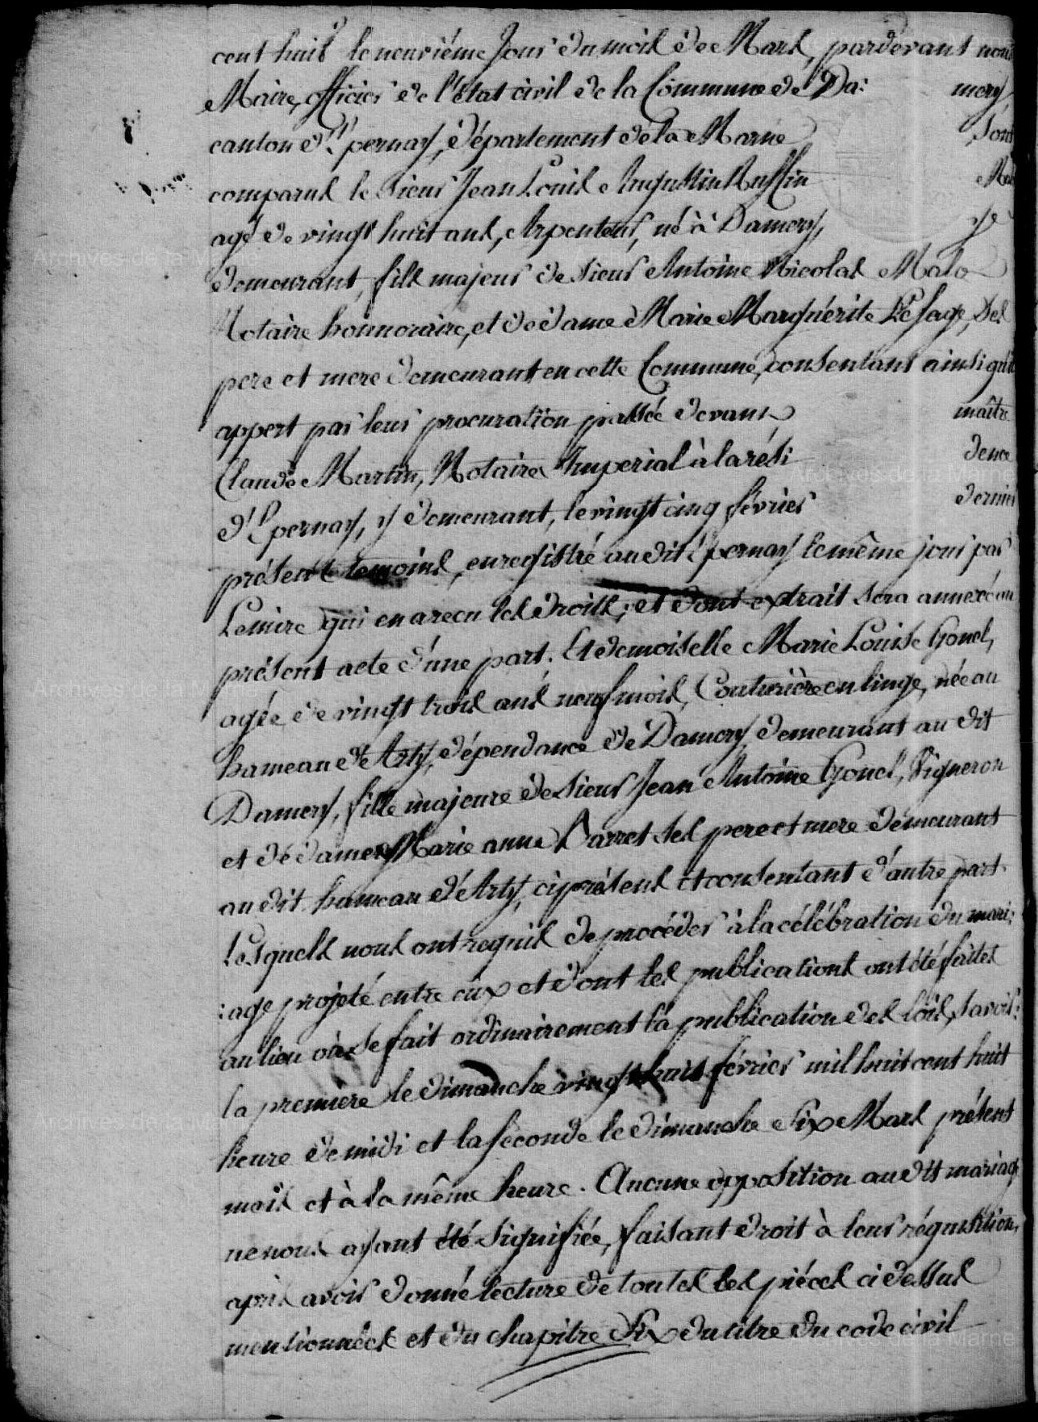 cent huit le neuvième Jour du mois de Mars, pardevant nous
Maire, officier de l'état civil de la Commune de Da: mery
canton d'Epernay, département de la Marne, sont
comparus le Sieur Jean Louis Augustin Ruffin Malo
agé de vingt huit ans, Arpenteur, né à Damery, y
demeurant, fils majeur de Sieur Antoine Nicolas Malo
Notaire honnoraire, et de dame Marie Marguérite Le Sage, Ses
pere et mere demeurant en cette Commune, consentant ainsi qu'il
appert par leur procuration passée devant maître
Claude Martin, Notaire Imperial à la rési dence
d'Epernay, y demeurant, le vingt cinq février dernier
présent temoins, enregistré audit Epernay le même jour par
Lemire qui en a recu les droits; et dont extrait sera annexé au
présent acte d'une part. Et demoiselle Marie Louise Gonel,
agée de vingt trois ans neuf mois, Couturière en linge, née au
hameau d'Arty, dépendance de Damery, demeurant au dit
Damery, fille majeure de Sieur Jean Antoine Gonel, Vigneron
et de dame Marie anne Barret Ses pere et mere demeurant
au dit hameau d'Arty, ci présens et consentant d'autre part.
Lesquels nous ont requis de procéder à la célébration du mari:
:age projeté entre eux et dont les publications ont été faites
au lieu où se fait ordinairement la publication des lois, Savoir:
la première le dimanche vingt huit février mil huit cent huit
heure de midi et la seconde le dimanche Six Mars présent
mois et à la même heure. Aucune opposition au dit mariage
ne nous ayant été signifiée, faisant droit à leur réquisition,
après avoir donné lecture de toutes les pièces ci dessus
mentionnées et du chapitre Six du titre du code civil